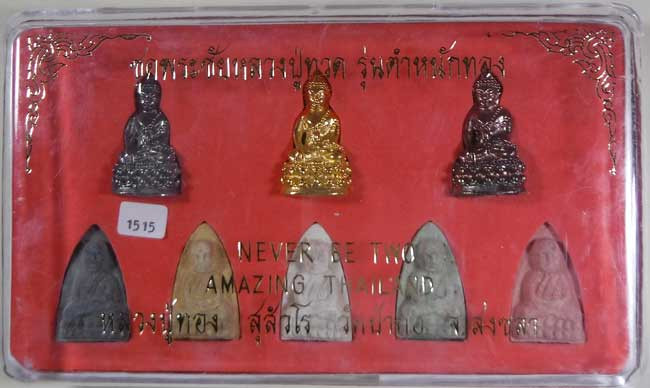 ชุดพระชัยหลวงปู่ทวด รุ่นตำหนักทอง
1515
NEVER BE TWO
AMAZING THAILAND
หลวงปู่ทอง สุสํวโร วัดป่ากอ จ.สงขลา